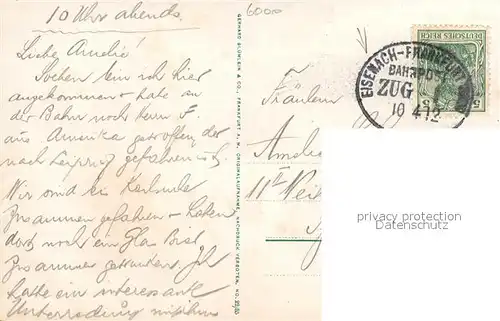 10 Uhr abends.
Liebe Amelie!
Soeben bin ich hier
angekommen + habe an
der Bahn noch Herrn F.
aus Amerika getroffen, der
nach Leipzig gefahren ist.
Wir sind bis Karlsruhe
zusammen gefahren + haben
dort noch ein Glas Bier
zusammen getrunken. Ich
hatte ein interessante
Unterredung mit ihm
GERHARD BLÜMLEIN & CO., FRANKFURT A. M. ORIGINALAUFNAHME. NACHDRUCK VERBOTEN. NO.
6000
Fräulein
Amelie
11
DEUTSCHES REICH
5 5
EISENACH-FRANKFURT
BAHNPOST
ZUG
10 4 12
privacy protection
Datenschutz